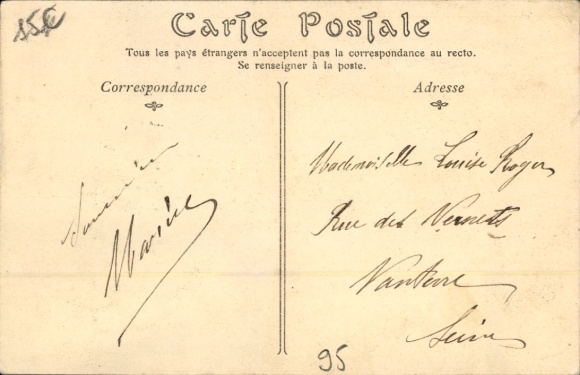 15€
Carte Postale
Tous les pays étrangers n'acceptent pas la correspondance au recto.
Se renseigner à la poste.
Correspondance
Adresse
Mademoiselle Louise Roger
Rue des
Nanterre
Seine
Souvenir
95